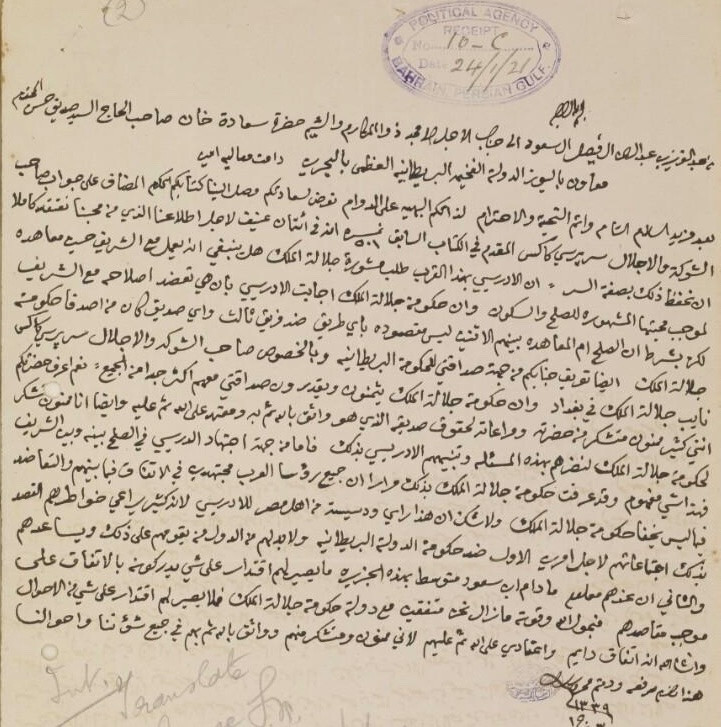 (2)
POLITICAL AGENCY
RECEIPT
No. 10-C
Date 24/1/21
BAHRAIN, PERSIAN GULF.
من عبدالعزيز بن عبدالرحمن الفيصل ال سعود الى جناب الاجل الامجد ذو المكارم والشيم حضرة سعادة خان صاحب الحاج السيد صديق حسن المحترم
معاون باليوز الدولة الفخيمة البريطانيه العظمى بالبحرين دامت معاليه امين
بعد مزيد السلام التام ومزيد التحية والاحترام لذاتكم البهيه على الدوام نعرض لسعادتكم وصل الينا كتابكم المضاف على جواب صاحب
الشوكة والاجلال سر پرسي كاكس المقدم في الكتاب السابق نمره ٥٠١ لاجل اطلاعنا الذي من محبنا نعتقد كاملا
ان نحفظ ذلك بصفة السر ان الادريسي بهذا القرب طلب مشورة جلالة الملك هل ينبغي انه يعمل مع الشريف حسين معاهده
لموجب محبتها المشهوره للصلح والسكون وان حكومة جلالة الملك اجابت الادريسي بان هي تعضد اصلاحه مع الشريف
لكن بشرط ان الصلح ام المعاهده بينهم الاثنين ليس مقصوده باي طريق ضد فريق ثالث واي صديق كان من اصدقا حكومة
جلالة الملك ايضا تعريف جنابكم من جهة صداقتي للحكومة البريطانيه وبالخصوص صاحب الشوكه والاجلال سر پرسي كاكس
نايب جلالة الملك في بغداد وان حكومة جلالة الملك يثمنون ويقدرون صداقتي معهم اكثر جدا من الجميع نعم اعرف حضرتكم
انني كثير ممنون متشكر من حضرته ومراعاته لحقوق صديقه الذي هو واثق بالله ثم به ومعتمد على الله ثم عليه وايضا انا ممنون متشكر
لحكومة جلالة الملك لنظرهم بهذه المسئله وتنبيههم الادريسي بذلك فاما من جهة اجتهاد الدريسي في الصلح بينه وبين الشريف
فهذا شي مفهوم وقد عرفت حكومة جلالة الملك بذلك مرارا ان جميع رؤسا العرب مجتهدين في الاتفاق فيما بينهم والتعاضد
فيما ليس يخفا حكومة جلالة الملك ولا شك ان هذا راي ودسيسة من اهل مصر للادريسي لانه كثير يراعي خواطرهم القصد
بذلك اجتماعاتهم لاجل امرين الاول ضد حكومة الدولة البريطانيه ولا بد لهم من الدول من يقومهم على ذلك ويساعدهم
والثاني ان عندهم معلوم مادام ابن سعود متوسط بهذه الجزيره ما يصير لهم اقتدار على شي يدركونه بالاتفاق على
موجب مقاصدهم فبحول الله وقوته ما نزال نحن متفقين مع دولة حكومة جلالة الملك فلا يصير لهم اقتدار على شي من الاحوال
وانشالله انه اتفاق دايم واعتمادي على الله ثم عليهم لاني ممنون ومتشكر منهم وواثق بالله ثم بهم في جميع شؤننا واحوالنا
هذا ما لزم رفعه ودمتم محروسين
١٣٣٩
Int.
Translate